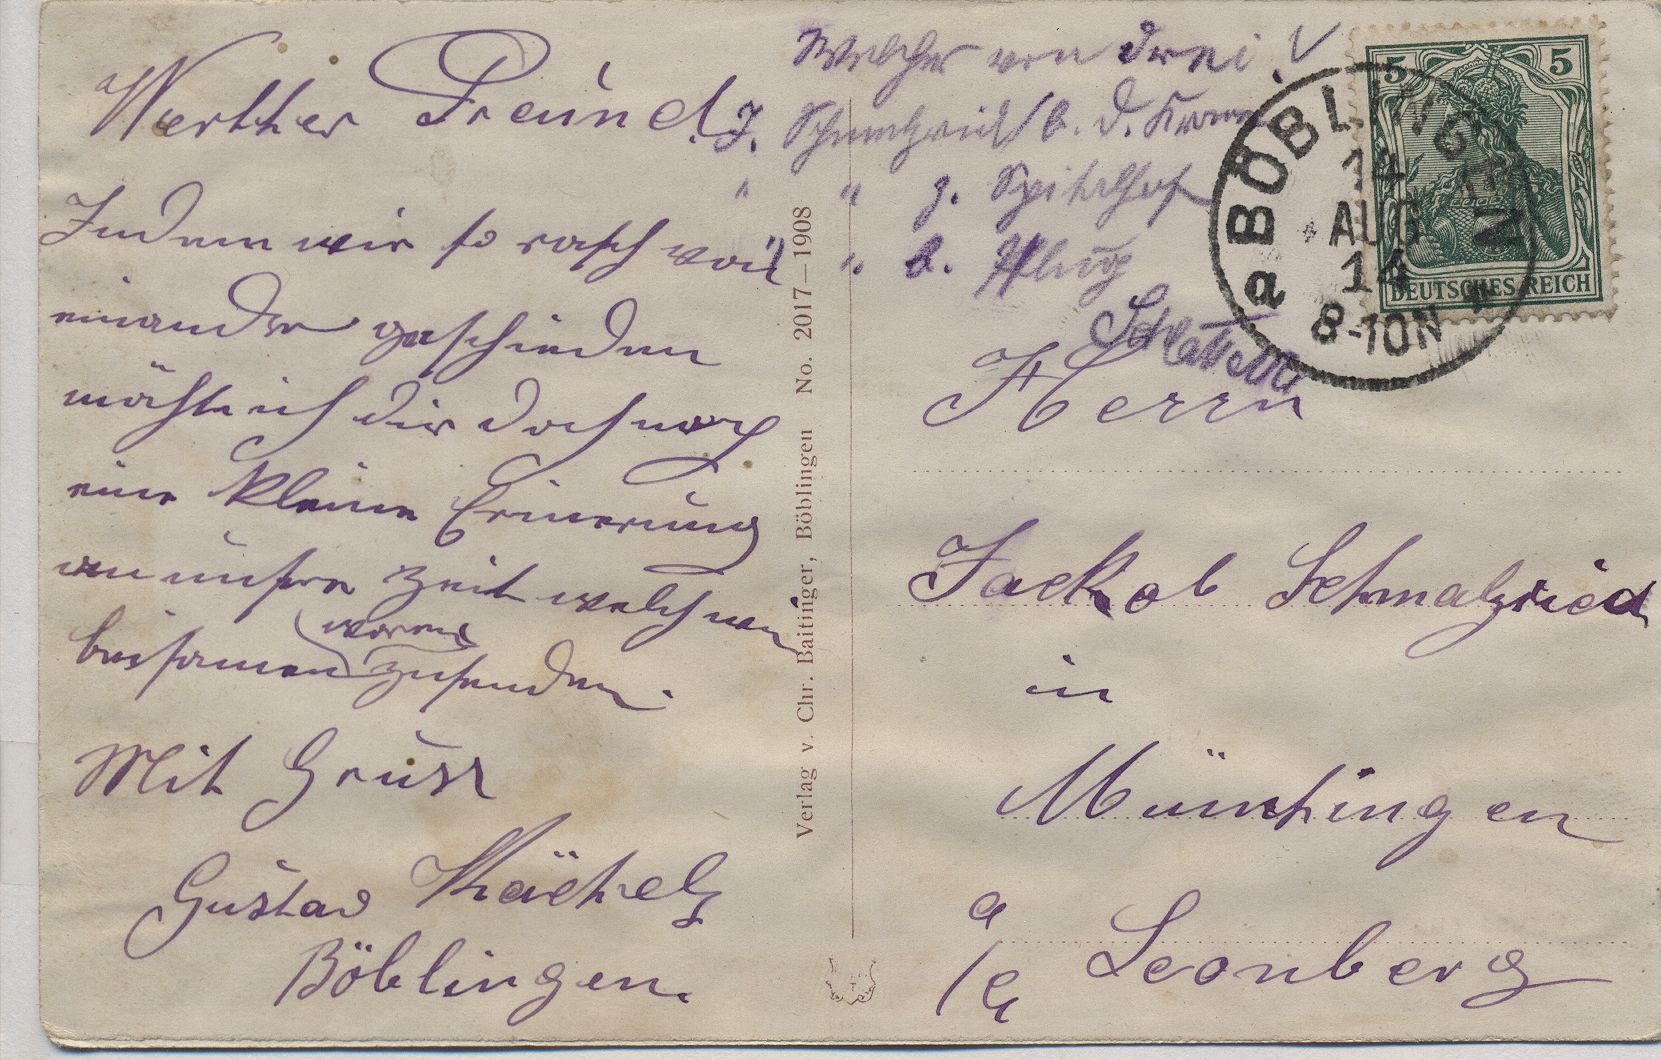 Werther Freund!
Indem wir so rasch von
einander geschieden
möchte ich dir doch noch
eine kleine Erinerung
an unsere Zeit welch wir
beisamen waren zusenden.
Mit Gruss
Gustav
Böblingen.
Welcher von drei!
J. Schmalzried b. d. Krone
" " z. Spitalhof
" " b. Pflug
Verlag v. Chr. Baitinger, Böblingen No. 2017–1908
5 5
DEUTSCHES REICH
BÖBLINGEN
14
AUG
14
8-10N
a
Herrn
Jackob Schmalzried
in
Münchingen
O/A Leonberg